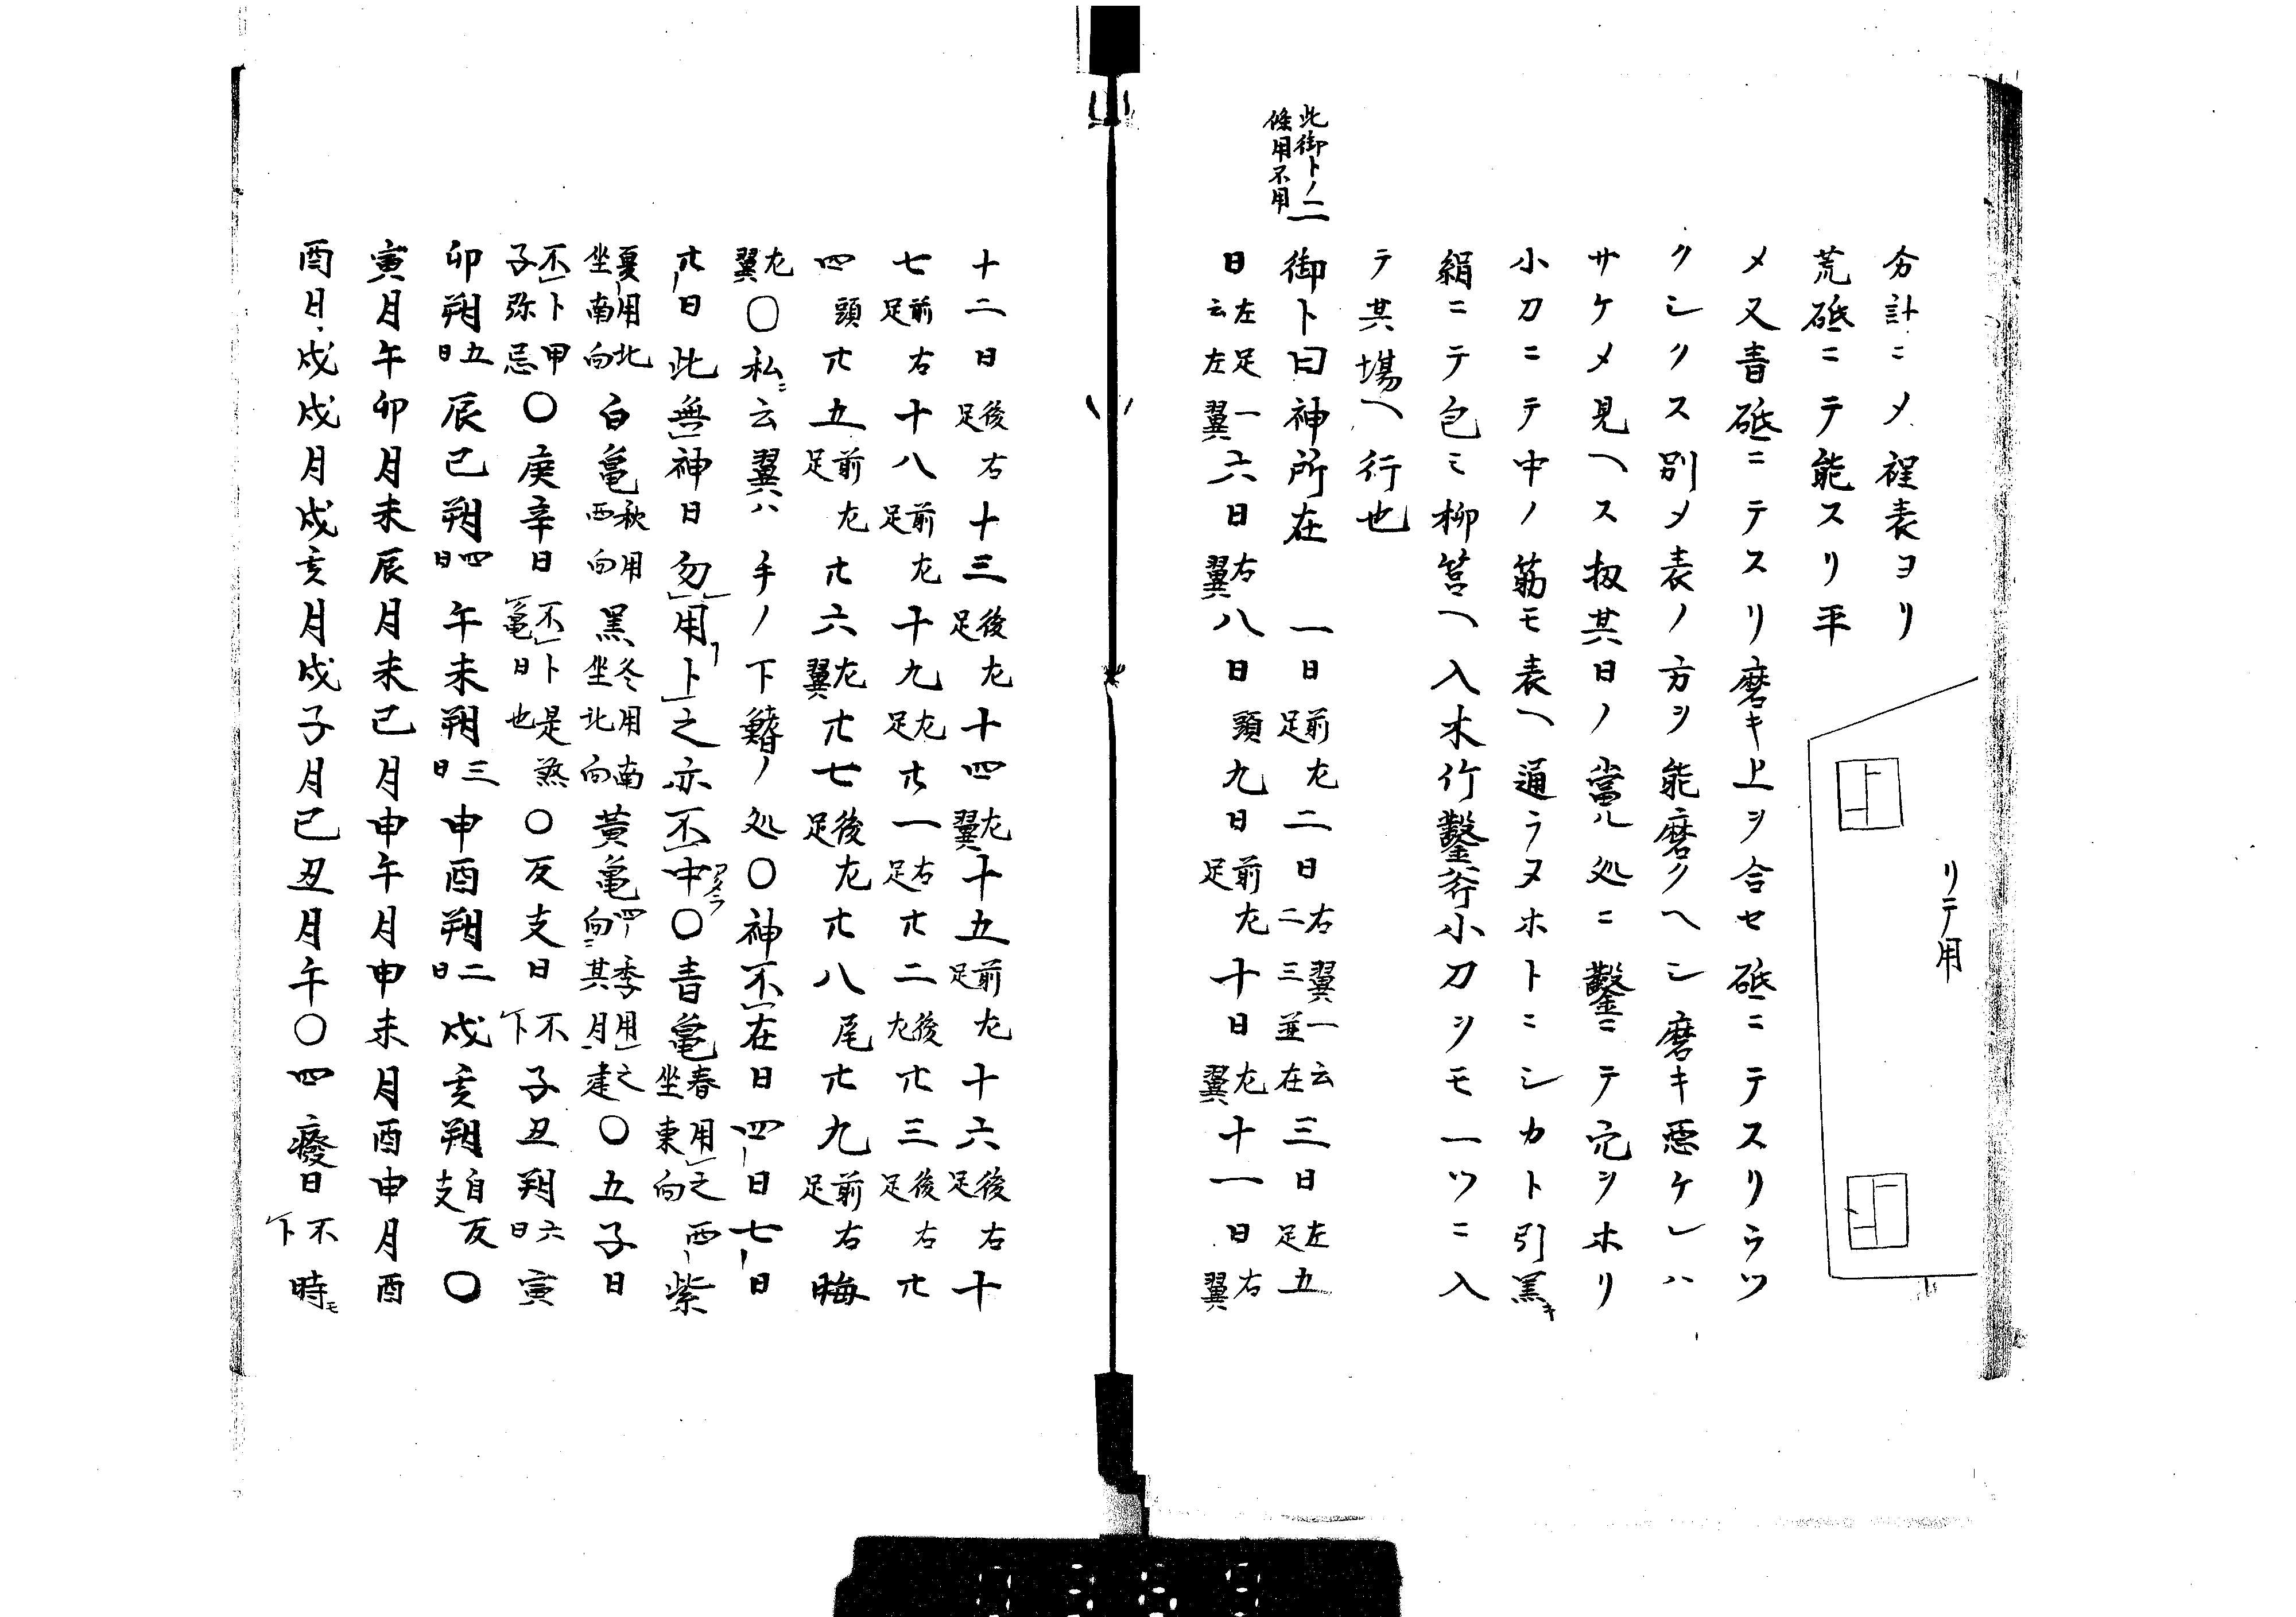 リテ用
分計ニメ裎表ヨリ
荒砥ニテ能スリ平
メ又青砥ニテスリ磨キ上ヲ合セ砥ニテスリウツ
クシクス別メ表ノ方ヲ能磨クヘシ磨キ悪ケレハ
サケメ見ヘス扨其日ノ當ル処ニ鑿ニテ穴ヲホリ
小刀ニテ中ノ筋モ表ヘ通ラヌホトニシカト引黒キ
絹ニテ包ミ柳筥ヘ入木竹鑿斧小刀ヲモ一ツニ入
テ其場ヘ行也
此御卜ノ二
條用不用
御卜曰神所在 一日前足左二日右翼一云二三並在三日左足五
日左足一云左翼六日右翼八日頭九日前足左十日左翼十一日右翼
十二日後足右十三後足左十四左翼十五前足左十六後足右十
七前足右十八前足左十九左足廿一右足廿二後左廿三後足右廿
四頭廿五前足左廿六左翼廿七後足左廿八尾廿九前足右晦
左翼〇私ニ云翼ハ手ノ下鰭ノ処〇神不在日四日七日
廿日此無神日勿用卜之亦不中アタラ〇青亀春用之坐東向西紫
夏用北坐南向白亀秋用西向黒冬用南坐北向黄亀四季用之向ニ其月建〇五子日
不卜甲子弥忌〇庚辛日不卜是亀日也煞〇反支日不卜子丑朔六日寅
卯朔五日辰巳朔四日午未朔三日申酉朔二日戌亥朔自反支〇
寅月午卯月未辰月未巳月申午月申未月酉申月酉
酉月戌戌月戌亥月戌子月巳丑月午〇四癈日不卜時モ